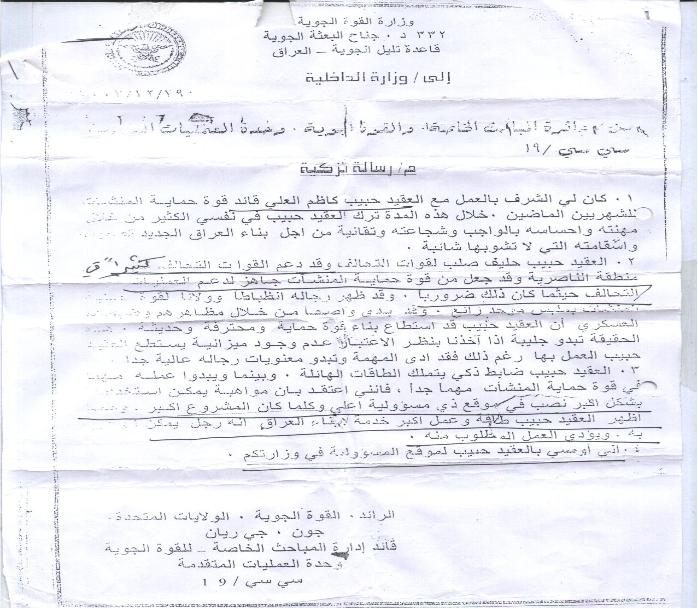 وزارة القوة الجوية
٣٣٢ د. جناح البعثة الجوية
قاعدة تليل الجوية - العراق
إلى / وزارة الداخلية
من / دائرة المباحث الخاصة. والقوة الجوية. وحدة العمليات
سي سي / ١٩
م/ رسالة تزكية
١. كان لي الشرف بالعمل مع العقيد حبيب كاظم العلي قائد قوة حماية المنشآت
للشهريين الماضين. خلال هذه المدة ترك العقيد حبيب في نفسي الكثير من خلال
مهنته واحساسه بالواجب وشجاعته وتفانية من اجل بناء العراق الجديد
واستقامته التي لا تشوبها شائبة.
٢. العقيد حبيب حليف صلب لقوات التحالف وقد دعم القوات التحالف
منطقة الناصرية وقد جعل من قوة حماية المنشآت جاهز لدعم العمليات
التحالف حيثما كان ذلك ضروريا. وقد ظهر رجاله انظباطا وولائا لقوة
رائع. وقد بدى واضحا من خلال مظاهرهم
العسكري أن العقيد حبيب قد استطاع بناء قوة حماية ومحترفة وحديثة. هذه
الحقيقة تبدو جليبة اذا آخذنا بنظر الاعتبار عدم وجود ميزانية يستطع العقيد
حبيب العمل بها رغم ذلك فقد ادى المهمة وتبدو معنويات رجاله عالية جدا.
٣. العقيد حبيب ضابط ذكي يتملك الطاقات الهائلة. وبينما ويبدوا عمله مهما
في قوة حماية المنشآت مهما جدا، فانني اعتقد بان مواهبة يمكن استخد
بشكل اكبر نصب في موقع ذي مسؤولية اعلى وكلما كان المشروع اكبر.
اظهر العقيد حبيب طاقة وعمل اكبر خدمة لابقاء العراق انه رجل يمكن
به. ويؤدي العمل المطلوب منه.
٤. اني اوصي بالعقيد حبيب لموقع المسؤولية في وزارتكم.
الرائد. القوة الجوية. الولايات المتحدة.
جون. جي ريان
قائد إدارة المباحث الخاصة - للقوة الجوية
وحدة العمليات المتقدمة
سي سي / ١٩